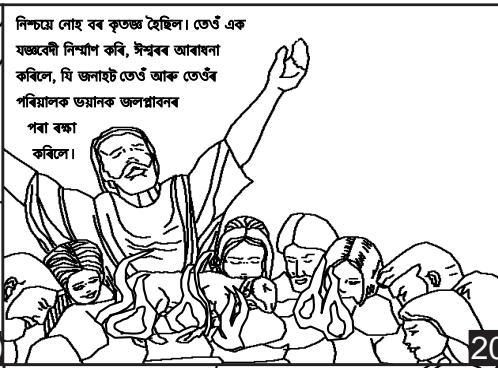 নিশ্চয়ে নোহ বৰ কৃতজ্ঞ হৈছিল। তেওঁ এক
যজ্ঞবেদী নিৰ্ম্মাণ কৰি, ঈশ্বৰৰ আৰাধনা
কৰিলে, যি জনাহট তেওঁ আৰু তেওঁৰ
পৰিয়ালক ভয়ানক জলপ্লাবনৰ
পৰা ৰক্ষা
কৰিলে।
20